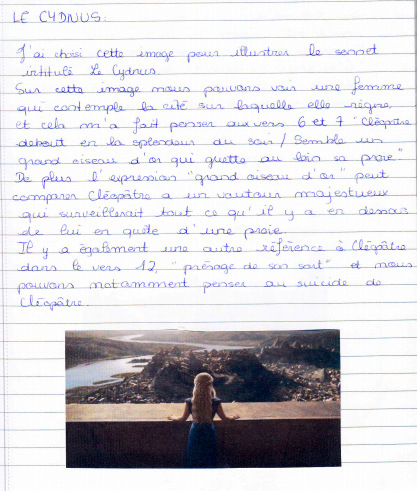 LE CYDNUS:
J'ai choisi cette image pour illustrer le sonnet
intitulé Le Cydnus.
Sur cette image nous pouvons voir une femme
qui contemple la cité sur laquelle elle règne,
et cela m'a fait penser aux vers 6 et 7 "Cléopâtre
debout en la splendeur du soir / Semble un
grand oiseau d'or qui guette au loin sa proie."
De plus l'expression "grand oiseau d'or" peut
comparer Cléopâtre a un vautour majestueux
qui surveillerait tout ce qu'il y a en dessous
de lui en quête d'une proie.
Il y a également une autre référence à Cléopâtre
dans le vers 12, "présage de son sort" et nous
pouvons notamment penser au suicide de
Cléopâtre.